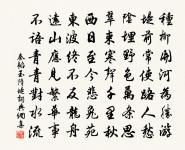 種柳開河為勝游
堤前常使路人愁
陰埋野色萬條思
翠束寒聲千里秋
西日至今悲兔苑
東波終不反龍舟
遠山應見繁華事
不語青青對水流
秦韜玉隋堤詞典網